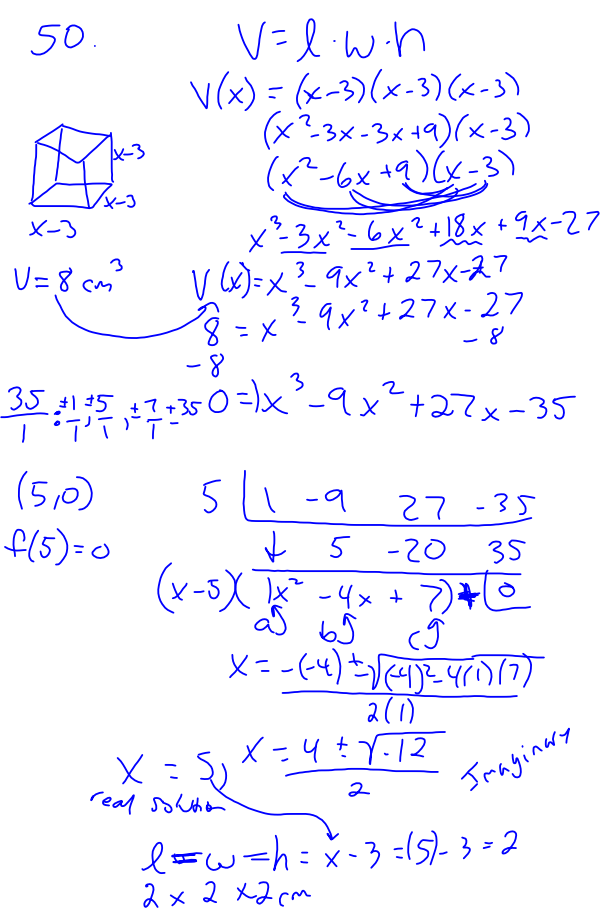 50.
V = l · w · h
V(x) = (x-3)(x-3)(x-3)
(x²-3x-3x+9)(x-3)
(x²-6x+9)(x-3)
x-3
x-3
x-3
x³-3x²-6x²+18x+9x-27
V = 8 cm³
V(x) = x³-9x²+27x-27
8 = x³-9x²+27x-27
-8 -8
35/1 : ±1/1, ±5/1, ±7/1 ±35
0 = 1x³-9x²+27x-35
(5,0)
5 | 1 -9 27 -35
f(5) = 0
↓ 5 -20 35
(x-5)(1x² -4x + 7) + 0
a b c
x = (-(-4) ± √((-4)²-4(1)(7)))/2(1)
x = 5, x = (4 ± √-12)/2 Imaginary
real solution
l = w = h = x-3 = (5)-3 = 2
2 x 2 x 2 cm